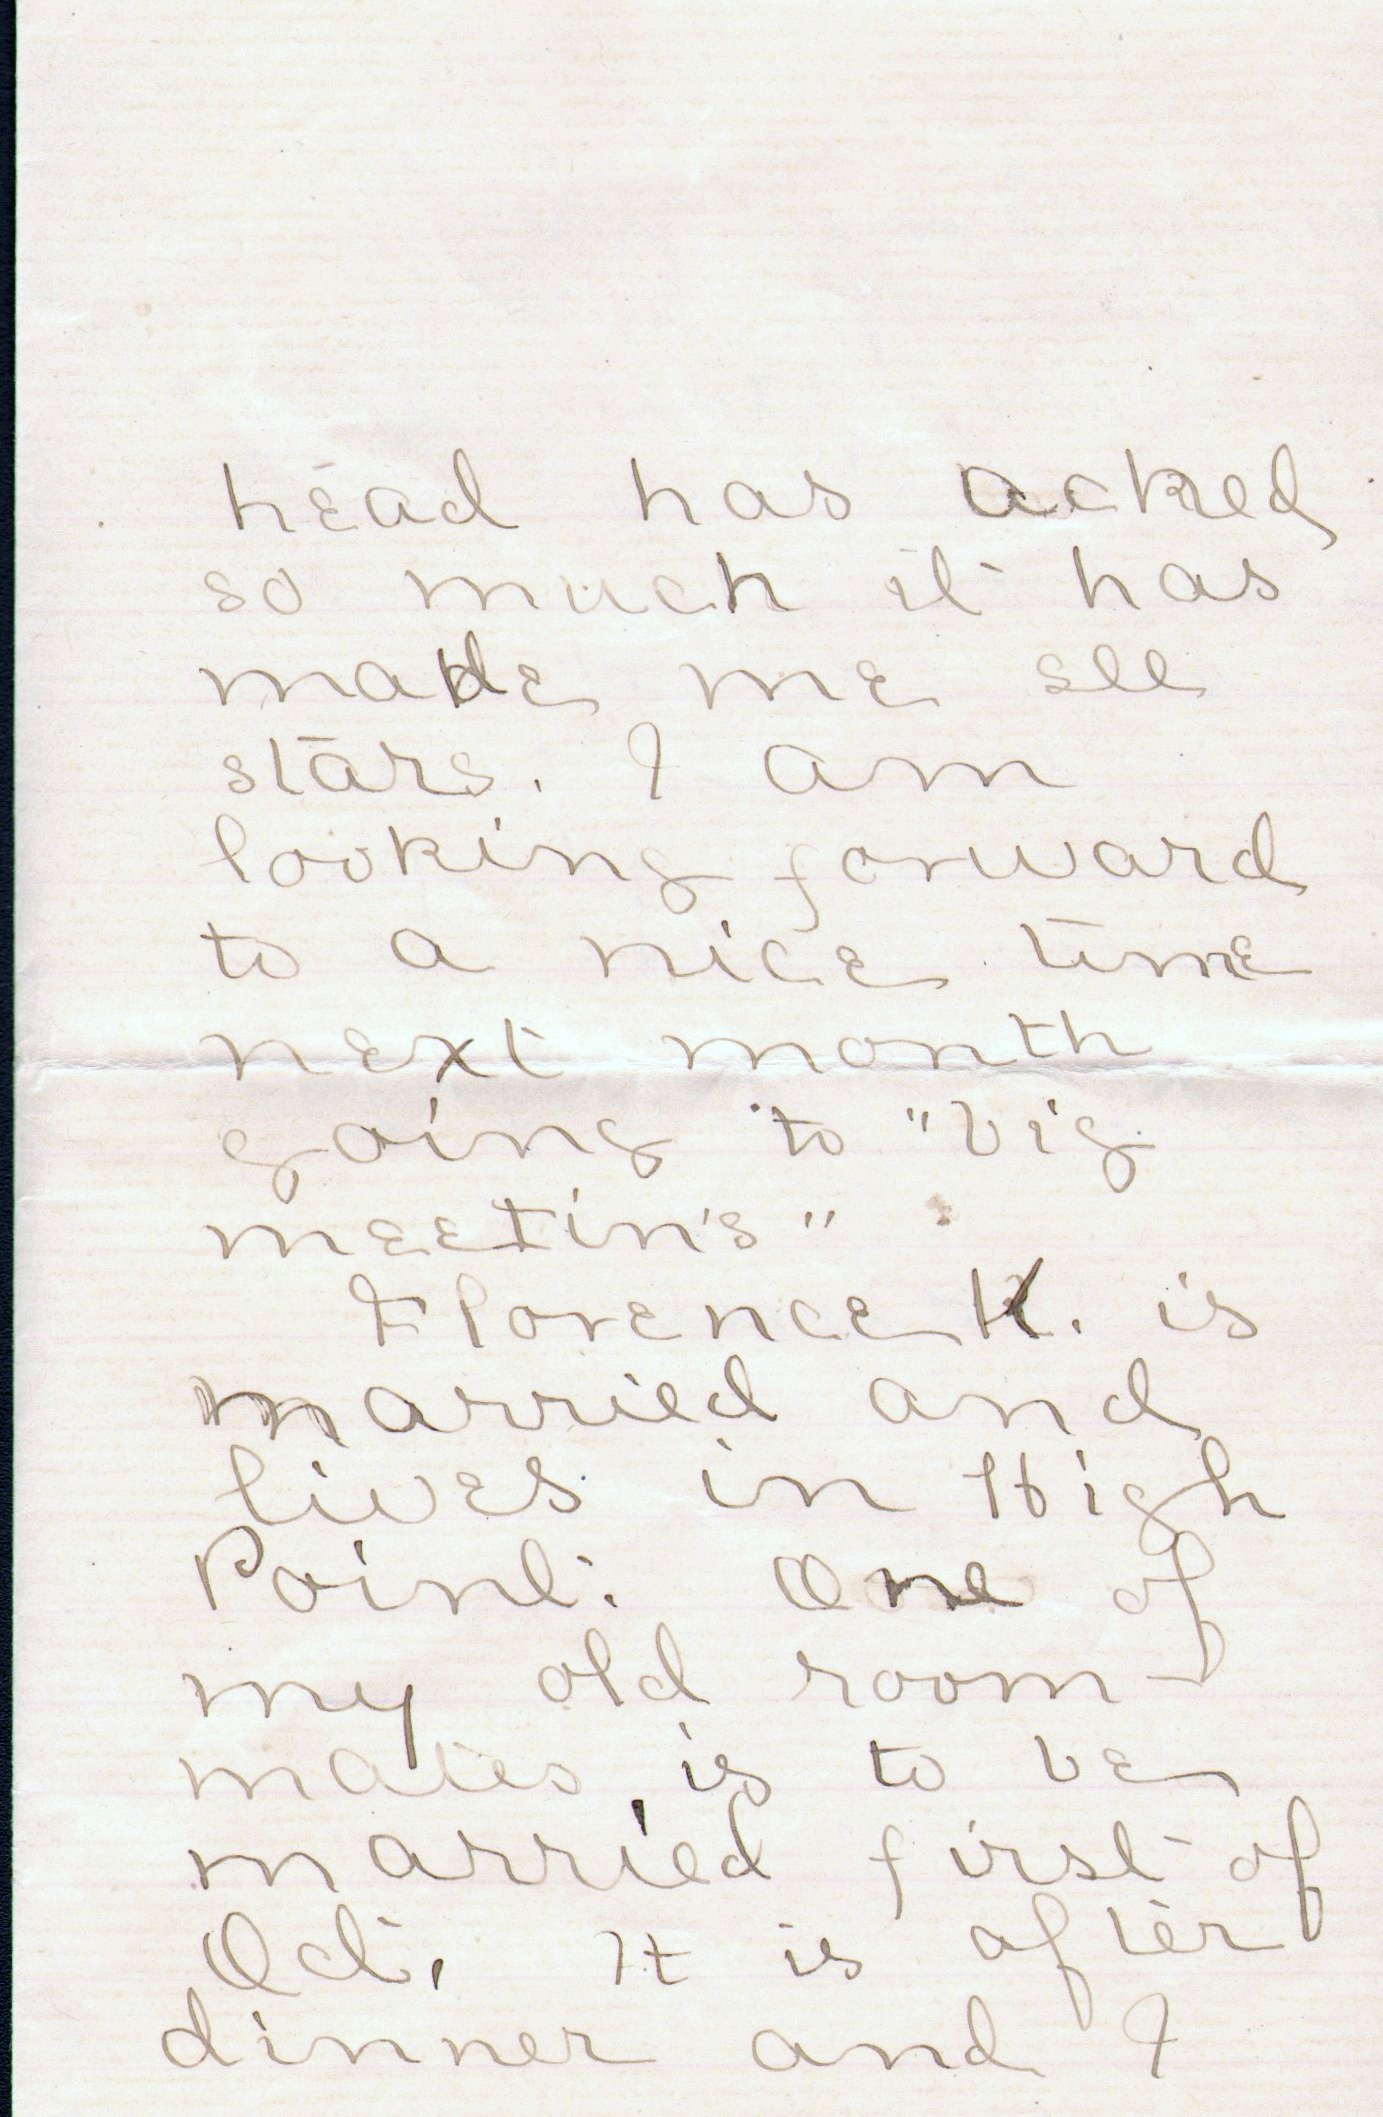 head has acked
so much it has
made me see
stars. I am
looking forward
to a nice time
next month
going to "big
meetin's"
Florence K. is
married and
lives in High
Point. One of
my old room-
mates is to be
married first of
Oct. It is after
dinner and I